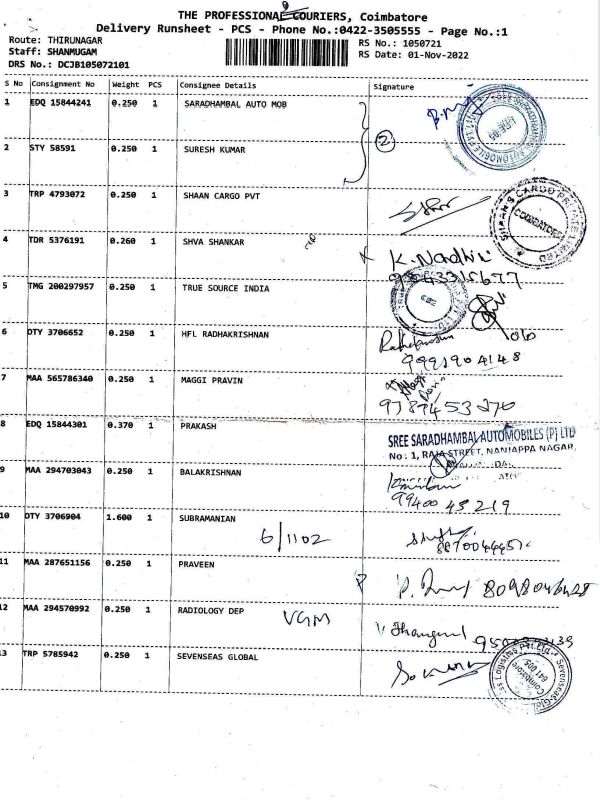 THE PROFESSIONAL COURIERS, Coimbatore
Delivery Runsheet - PCS - Phone No.:0422-3505555 - Page No.:1
Route: THIRUNAGAR
RS No.: 1050721
Staff: SHANMUGAM
RS Date: 01-Nov-2022
DRS No.: DCJB105072101
S No Consignment No Weight PCS Consignee Details Signature
1 EDQ 15844241 0.250 1 SARADHAMBAL AUTO MOB
2 STY 58591 0.250 1 SURESH KUMAR 2
3 TRP 4793072 0.250 1 SHAAN CARGO PVT
SHAAN'S CARGO PRIVATE LIMITED
COIMBATORE
4 TDR 5376191 0.260 1 SHVA SHANKAR K. Nandhini
5 TMG 200297957 0.250 1 TRUE SOURCE INDIA
6 DTY 3706652 0.250 1 HFL RADHAKRISHNAN
7 MAA 565786340 0.250 1 MAGGI PRAVIN
8 EDQ 15844301 0.370 1 PRAKASH
SREE SARADHAMBAL AUTOMOBILES (P) LTD
No: 1, RAJA STREET, NANJAPPA NAGAR,
9 MAA 294703043 0.250 1 BALAKRISHNAN
99400 43219
10 DTY 3706904 1.600 1 SUBRAMANIAN
6/1102
11 MAA 287651156 0.250 1 PRAVEEN
12 MAA 294570992 0.250 1 RADIOLOGY DEP VGM
13 TRP 5785942 0.250 1 SEVENSEAS GLOBAL